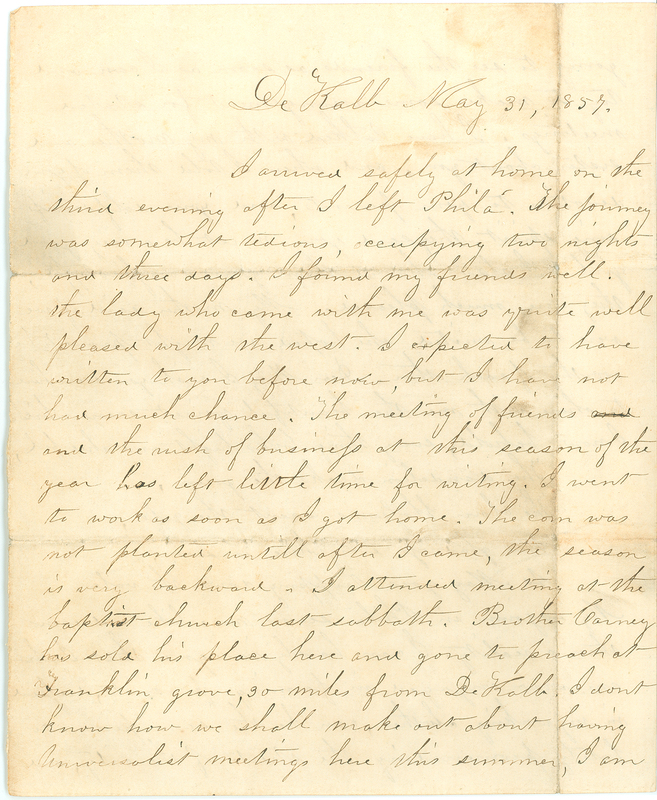 De Kalb May 31, 1857.
I arrived safely at home on the
third evening after I left Phila. The journey
was somewhat tedious, occupying two nights
and three days. I found my friends well.
the lady who came with me was quite well
pleased with the west. I expected to have
written to you before now, but I have not
had much chance. The meeting of friends and
and the rush of business at this season of the
year has left little time for writing. I went
to work as soon as I got home. The corn was
not planted untill after I came, the season
is very backward. I attended meeting at the
baptist church last sabbath. Brother Carney
has sold his place here and gone to preach at
Franklin grove, 30 miles from De Kalb. I dont
know how we shall make out about having
Universalist meetings here this summer, I am